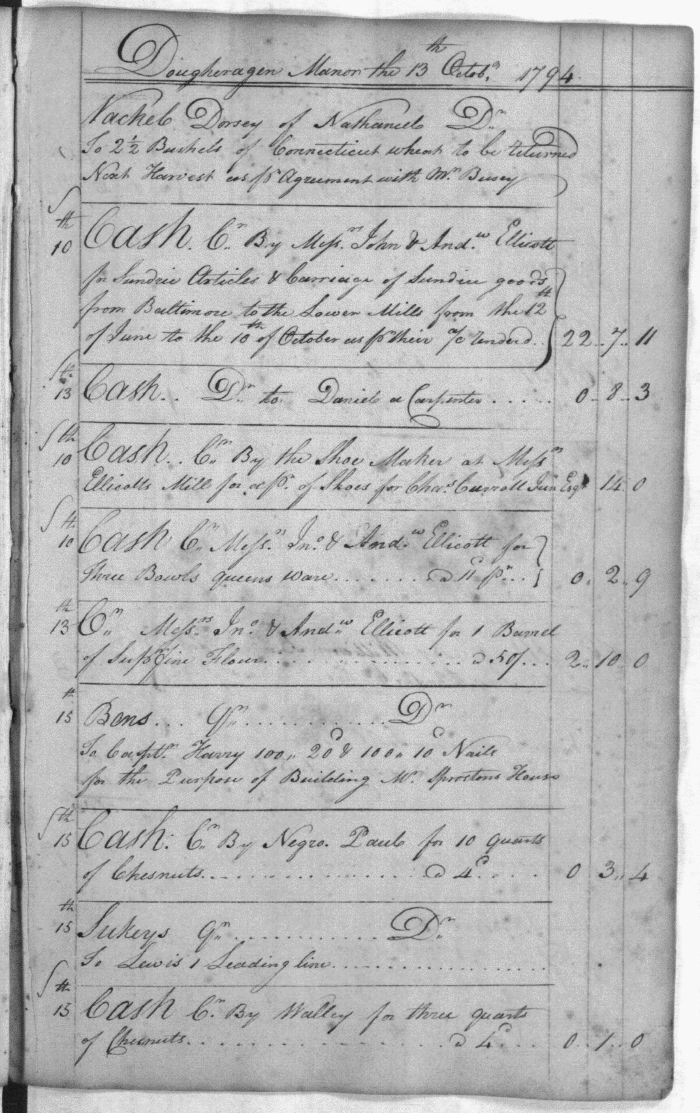 Dougheragen Manor the 13th Octobr 1794
Vachel Dorsey of Nathaniel Dr
To 2 1/2 Bushels of Connecticut wheat to be returned
Next Harvest as pr Agreement with Mr Bucey
10th Cash. Cr By Messrs John & Andw Ellicott
for Sundrie Articles & Carriage of Sundrie goods
from Baltimore to the Lower Mills from the 12th
of June to the 10th of October as pr their a/c renderd. 22..7..11
13th Cash.. Dr to Daniel a Carpenter ..... 0..8..3
10th Cash.. Cr By the Shoe Maker at Messrs
Ellicotts Mill for a pr. of Shoes for Chas Carroll Jun Esqr 14 0
10th Cash Cr Messrs Jno & Andw Ellicott for
three Bowls queens ware....... a 11d pr... 0..2..9
13th Cr Messrs Jno & Andw Ellicott for 1 Barrel
of Supr fine Flour............ a 50/... 2..10..0
15th Bens... Qr........... Dr
To Captn Harry 100,, 20d & 100,, 10d Nails
for the Purpose of Building Mr Sprostons House
15th Cash. Cr By Negro. Paul for 10 quarts
of Chesnuts............. a 4d.... 0 3..4
15th Sukeys Qr........... Dr
To Lewis 1 Leading line...............
15th Cash Cr By Walley for three quarts
of Chesnuts............... a 4d.... 0..1..0